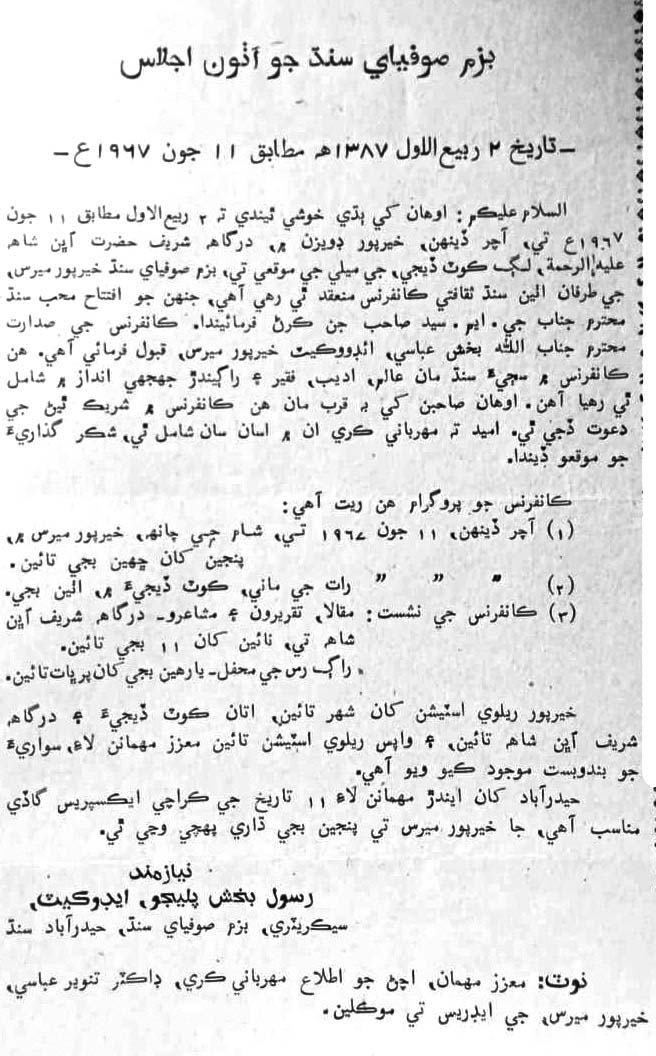 بزم صوفياي سنڌ جو آٺون اجلاس
ـ تاريخ ۲ ربيع الاول ۱۳۸۷هه مطابق ۱۱ جون ۱۹٦۷ع ـ
السلام عليڪم: اوهان کي ٻڌي خوشي ٿيندي تہ ۲ ربيع الاول مطابق ۱۱ جون
۱۹٦۷ع تي، آچر ڏينهن، خيرپور ڊويزن ۾، درگاهه شريف حضرت آڀن شاهه
عليه الرحمة، لڳ ڪوٽ ڏيجي، جي ميلي جي موقعي تي، بزم صوفياي سنڌ خيرپور ميرس،
جي طرفان اٺين سنڌ ثقافتي ڪانفرنس منعقد ٿي رهي آهي، جنهن جو افتتاح محب سنڌ
محترم جناب جي. ايم. سيد صاحب جن ڪرڻ فرمائيندا. ڪانفرنس جي صدارت
محترم جناب الله بخش عباسي، ائڊووڪيٽ خيرپور ميرس، قبول فرمائي آهي. هن
ڪانفرنس ۾ سڄيءَ سنڌ مان عالم، اديب، فقير ۽ راڳيندڙ جهجهي انداز ۾ شامل
ٿي رهيا آهن. اوهان صاحبن کي بہ قرب مان هن ڪانفرنس ۾ شريڪ ٿيڻ جي
دعوت ڏجي ٿي. اميد تہ مهرباني ڪري ان ۾ اسان سان شامل ٿي، شڪر گذاريءَ
جو موقعو ڏيندا.
ڪانفرنس جو پروگرام هن ريت آهي:
(۱) آچر ڏينهن، ۱۱ جون ۱۹٦۷ تي، شام جي چانهه، خيرپور ميرس ۾،
پنجين کان ڇهين بجي تائين.
(۲) " " " رات جي ماني، ڪوٽ ڏيجيءَ ۾، اٺين بجي.
(۳) ڪانفرنس جي نشست: مقالا، تقريرون ۽ مشاعرو ـ درگاهه شريف آڀن
شاهه تي، نائين کان ۱۱ بجي تائين.
راڳ رس جي محفل ـ يارهين بجي کان پرڀات تائين.
خيرپور ريلوي اسٽيشن کان شهر تائين، اتان ڪوٽ ڏيجيءَ ۽ درگاهه
شريف آڀن شاهه تائين، ۽ واپس ريلوي اسٽيشن تائين معزز مهمانن لاءِ، سواريءَ
جو بندوبست موجود ڪيو ويو آهي.
حيدرآباد کان ايندڙ مهمانن لاءِ ۱۱ تاريخ جي ڪراچي ايڪسپريس گاڏي
مناسب آهي، جا خيرپور ميرس تي پنجين بجي ڌاري پهچي وڃي ٿي.
نيازمند
رسول بخش پليجو، ايڊوڪيٽ،
سيڪريٽري، بزم صوفياي سنڌ، حيدرآباد سنڌ
نوٽ: معزز مهمان، اچڻ جو اطلاع مهرباني ڪري، ڊاڪٽر تنوير عباسي،
خيرپور ميرس، جي ايڊريس تي موڪلين.